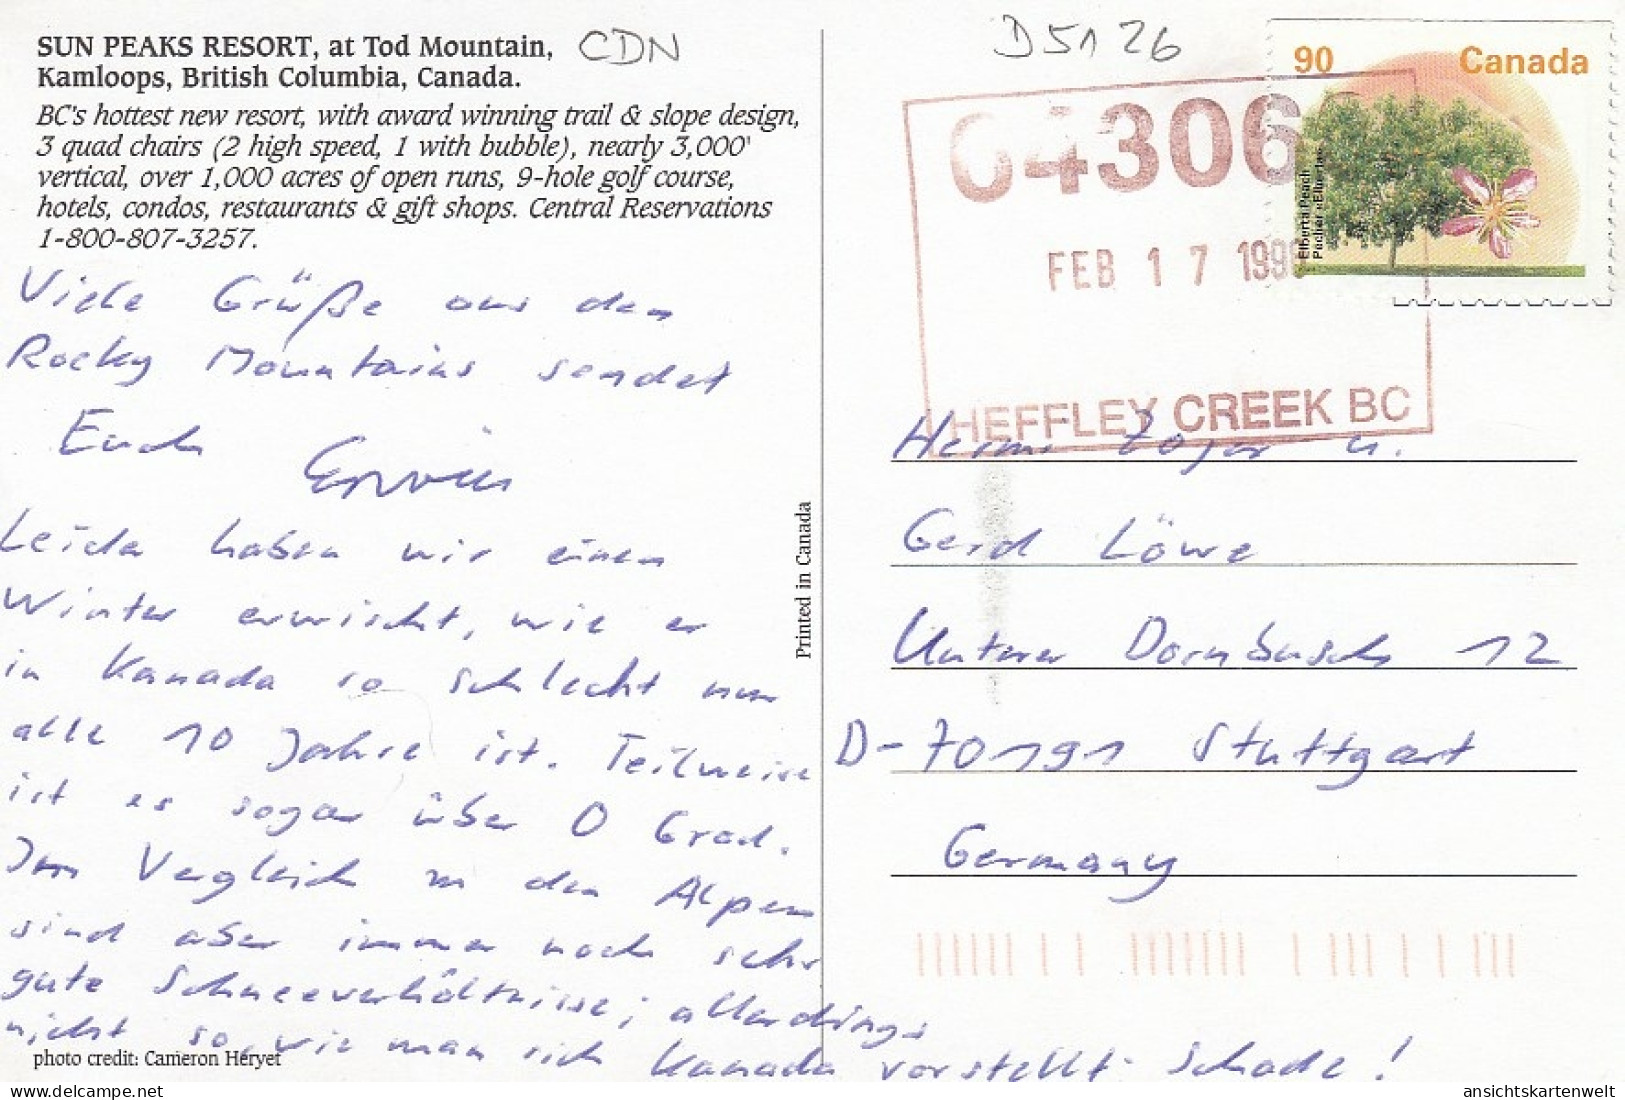 SUN PEAKS RESORT, at Tod Mountain,
Kamloops, British Columbia, Canada.
CDN
BC's hottest new resort, with award winning trail & slope design,
3 quad chairs (2 high speed, 1 with bubble), nearly 3,000'
vertical, over 1,000 acres of open runs, 9-hole golf course,
hotels, condos, restaurants & gift shops. Central Reservations
1-800-807-3257.
Viele Grüße aus den
Rocky Mountains sendet
Euch Erwin
Leider haben wir einen
Winter erwischt, wie er
in Kanada so schlecht nur
alle 10 Jahre ist. Teilweise
ist es sogar über 0 Grad.
Im Vergleich zu den Alpen
sind aber immer noch sehr
gute Schneeverhältnisse; allerdings
nicht so, wie man sich Kanada vorstellt. Schade!
photo credit: Cameron Heryet
Printed in Canada
D5126
90 Canada
Elberta Peach
Pêcher «Elberta»
04306
FEB 17 199
HEFFLEY CREEK BC
u.
Gerd Löwe
Unterer Dornbusch 12
D-70191 Stuttgart
Germany
delcampe.net
ansichtskartenwelt